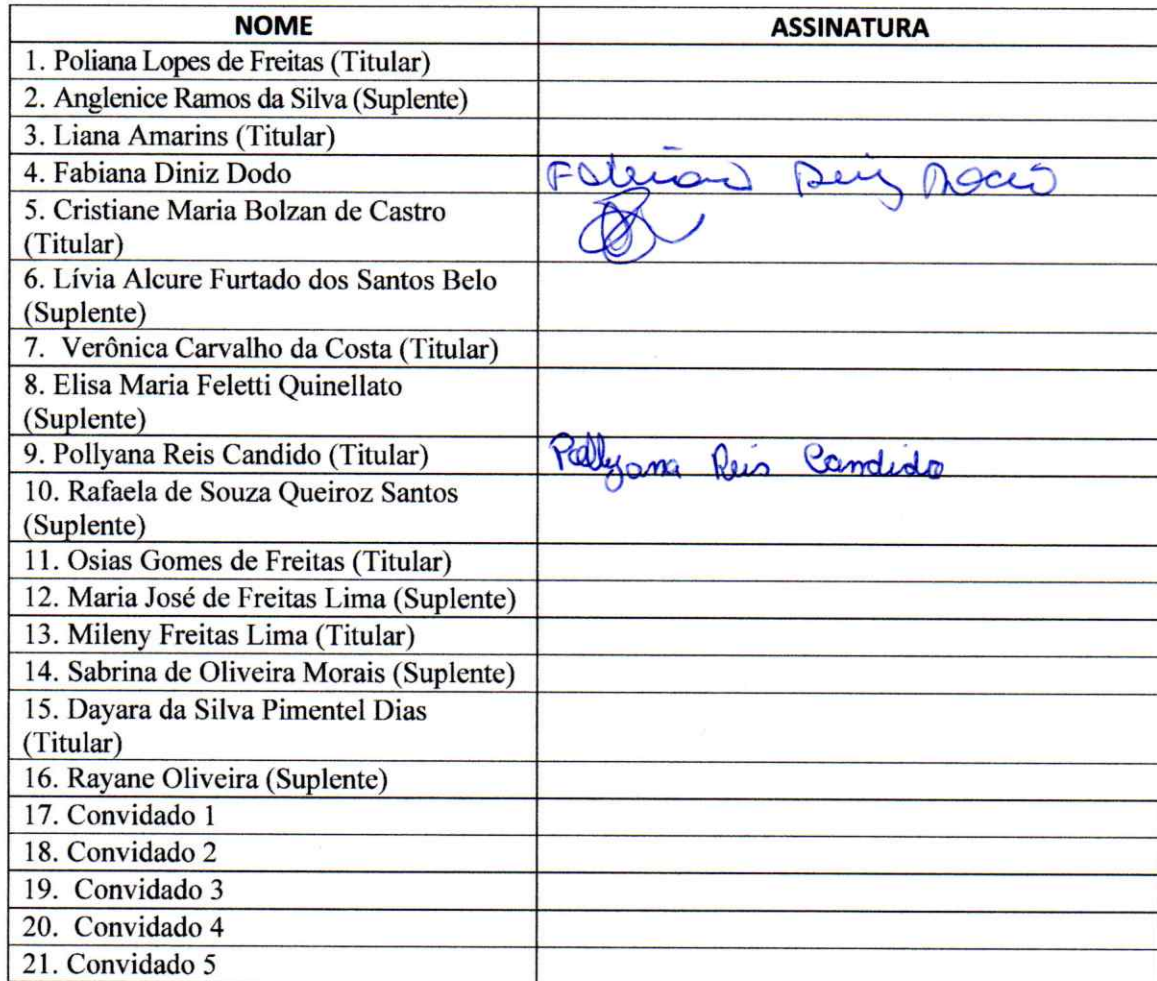 NOME ASSINATURA
1. Poliana Lopes de Freitas (Titular)
2. Anglenice Ramos da Silva (Suplente)
3. Liana Amarins (Titular)
4. Fabiana Diniz Dodo
5. Cristiane Maria Bolzan de Castro
(Titular)
6. Lívia Alcure Furtado dos Santos Belo
(Suplente)
7. Verônica Carvalho da Costa (Titular)
8. Elisa Maria Feletti Quinellato
(Suplente)
9. Pollyana Reis Candido (Titular) Pollyana Reis Candido
10. Rafaela de Souza Queiroz Santos
(Suplente)
11. Osias Gomes de Freitas (Titular)
12. Maria José de Freitas Lima (Suplente)
13. Mileny Freitas Lima (Titular)
14. Sabrina de Oliveira Morais (Suplente)
15. Dayara da Silva Pimentel Dias
(Titular)
16. Rayane Oliveira (Suplente)
17. Convidado 1
18. Convidado 2
19. Convidado 3
20. Convidado 4
21. Convidado 5